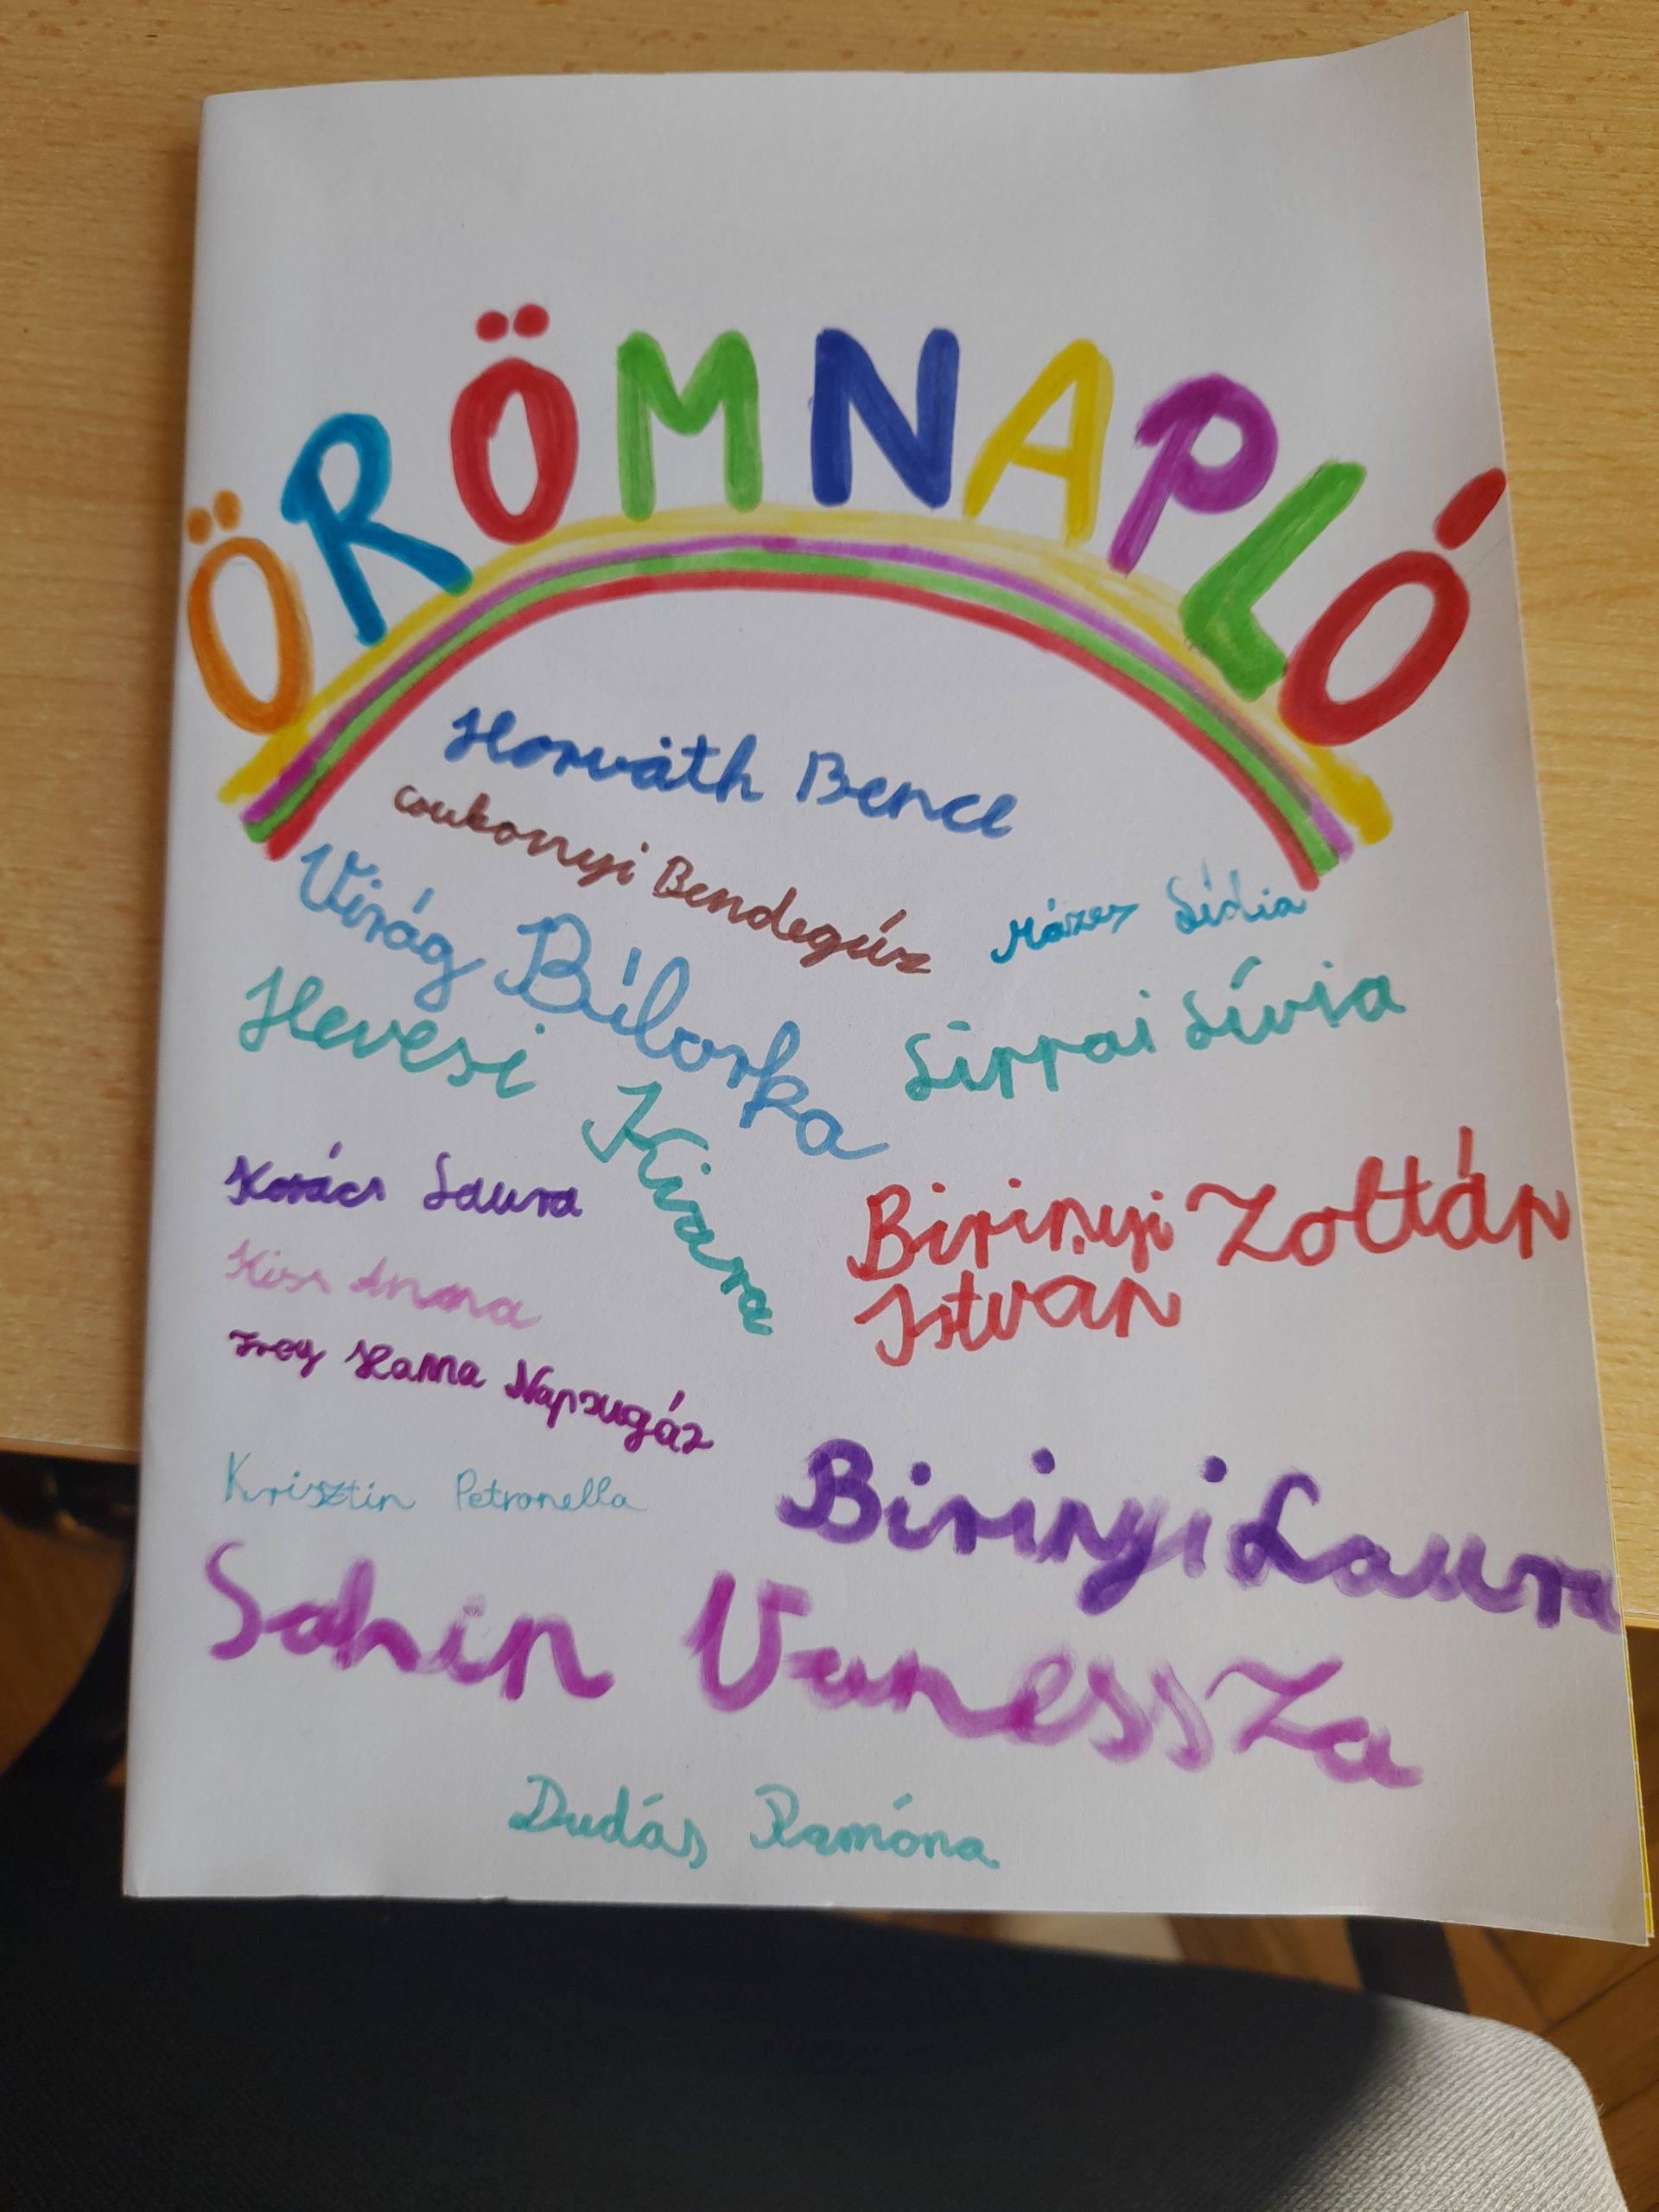 ÖRÖMNAPLÓ
Horváth Bence
Bendegúz
Virág Bíborka
Mázer Lídia
Hevesi Kiara
Sippai Lívia
Kovács Laura
Birinyi Zoltán
István
Kiss Anna
Hanna Napsugár
Krisztin Petronella
Birinyi Laura
Sahin Vanessza
Dudás Ramóna